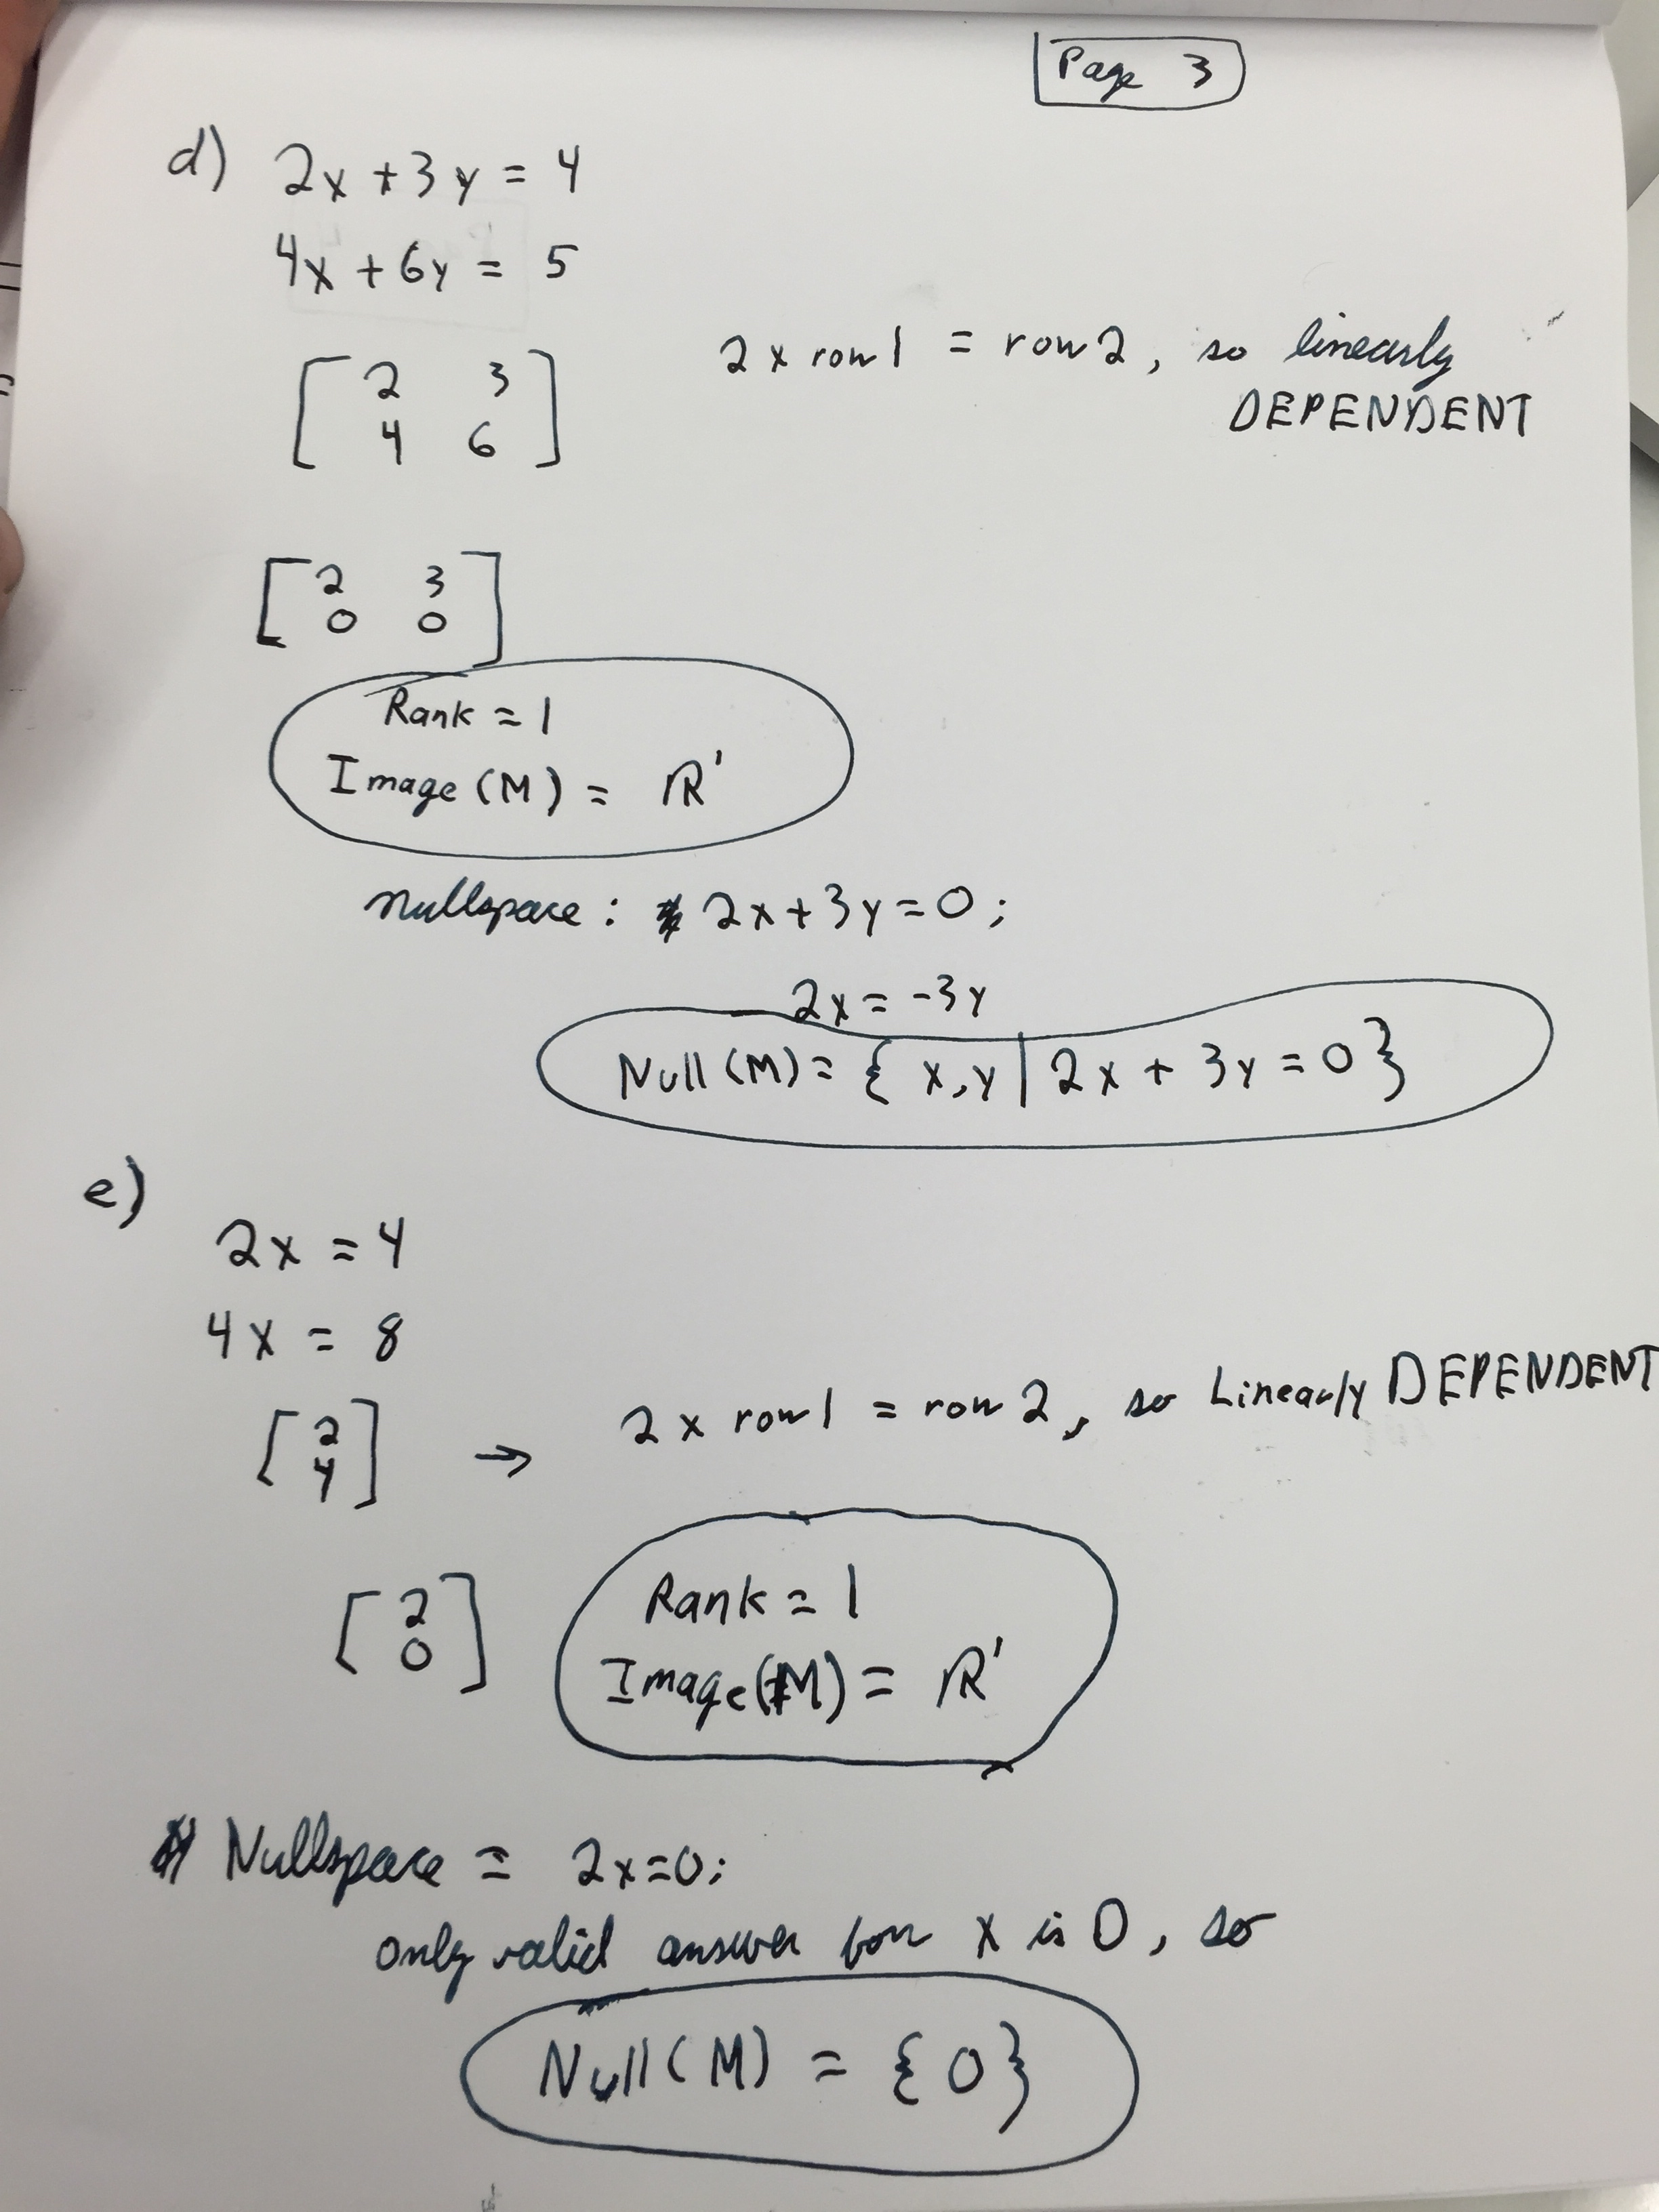 Page 3
d) 2x + 3y = 4
4x + 6y = 5
2 x row 1 = row 2, so linearly
DEPENDENT
[2 3
4 6]
[2 3
0 0]
Rank = 1
Image (M) = ℝ¹
Nullspace: 2x + 3y = 0;
2x = -3y
Null (M) = { x, y | 2x + 3y = 0 }
e)
2x = 4
4x = 8
2 x row 1 = row 2, so Linearly DEPENDENT
[2
4] →
[2
0]
Rank = 1
Image (M) = ℝ¹
Nullspace = 2x=0;
only valid answer for x is 0, so
Null (M) = { 0 }